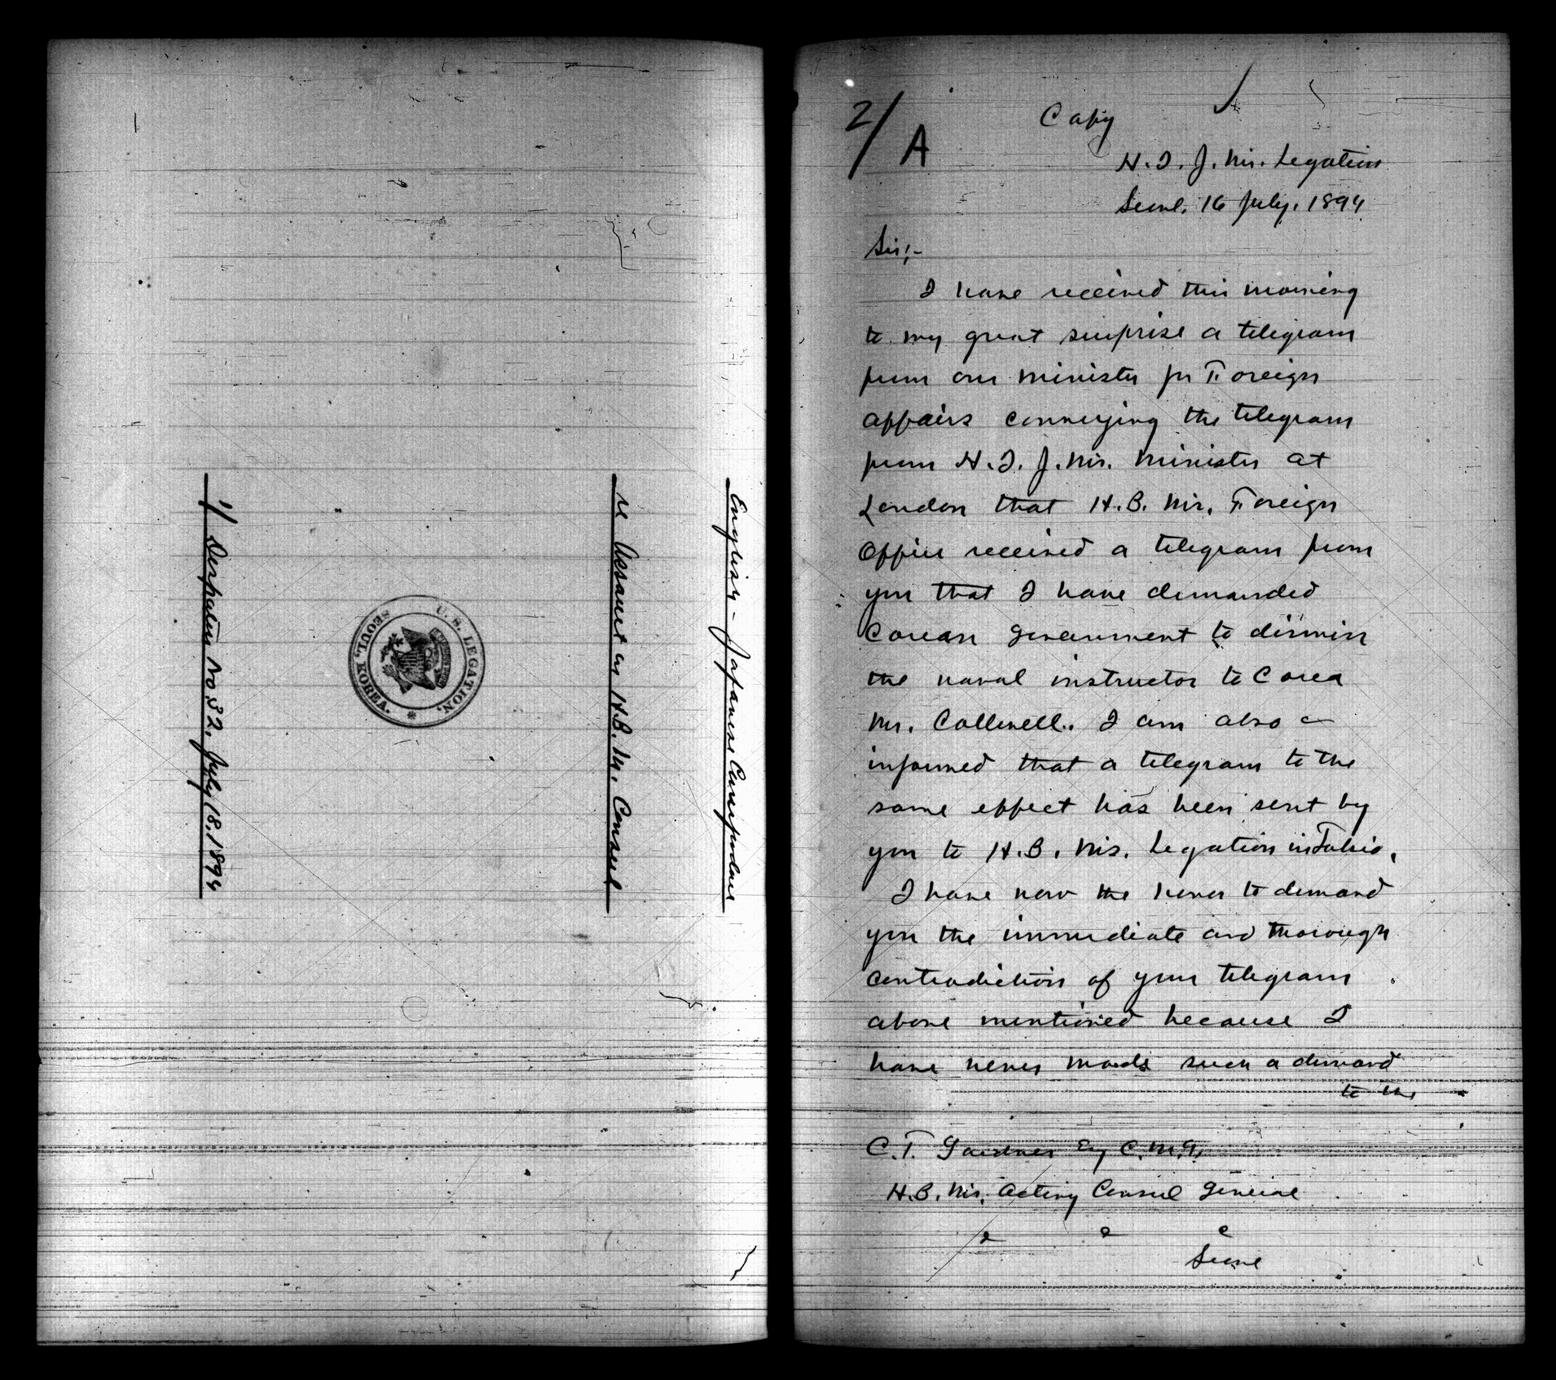 English - Japanese Correspondence
re Assault on H.B.M. Consul
U. S. LEGATION,
SEOUL, KOREA.
1/ Despatch No. 32. July 18. 1894
2/ A
Copy
H. I. J. Ms. Legation
Seoul. 16 July. 1894
Sir;-
I have received this morning
to my great surprise a telegram
from our Minister for Foreign
Affairs conveying the telegram
from H. I. J. Ms. Minister at
London that H. B. Ms. Foreign
Office received a telegram from
you that I have demanded
Corean Government to dismiss
the naval instructor to Corea
Mr. Callwell. I am also
informed that a telegram to the
same effect has been sent by
you to H. B. Ms. Legation in Tokio.
I have now the honor to demand
you the immediate and thorough
contradiction of your telegram
above mentioned because I
have never made such a demand
to the
C. T. Gardner Esq C. M. G.
H. B. Ms. Acting Consul General
Seoul